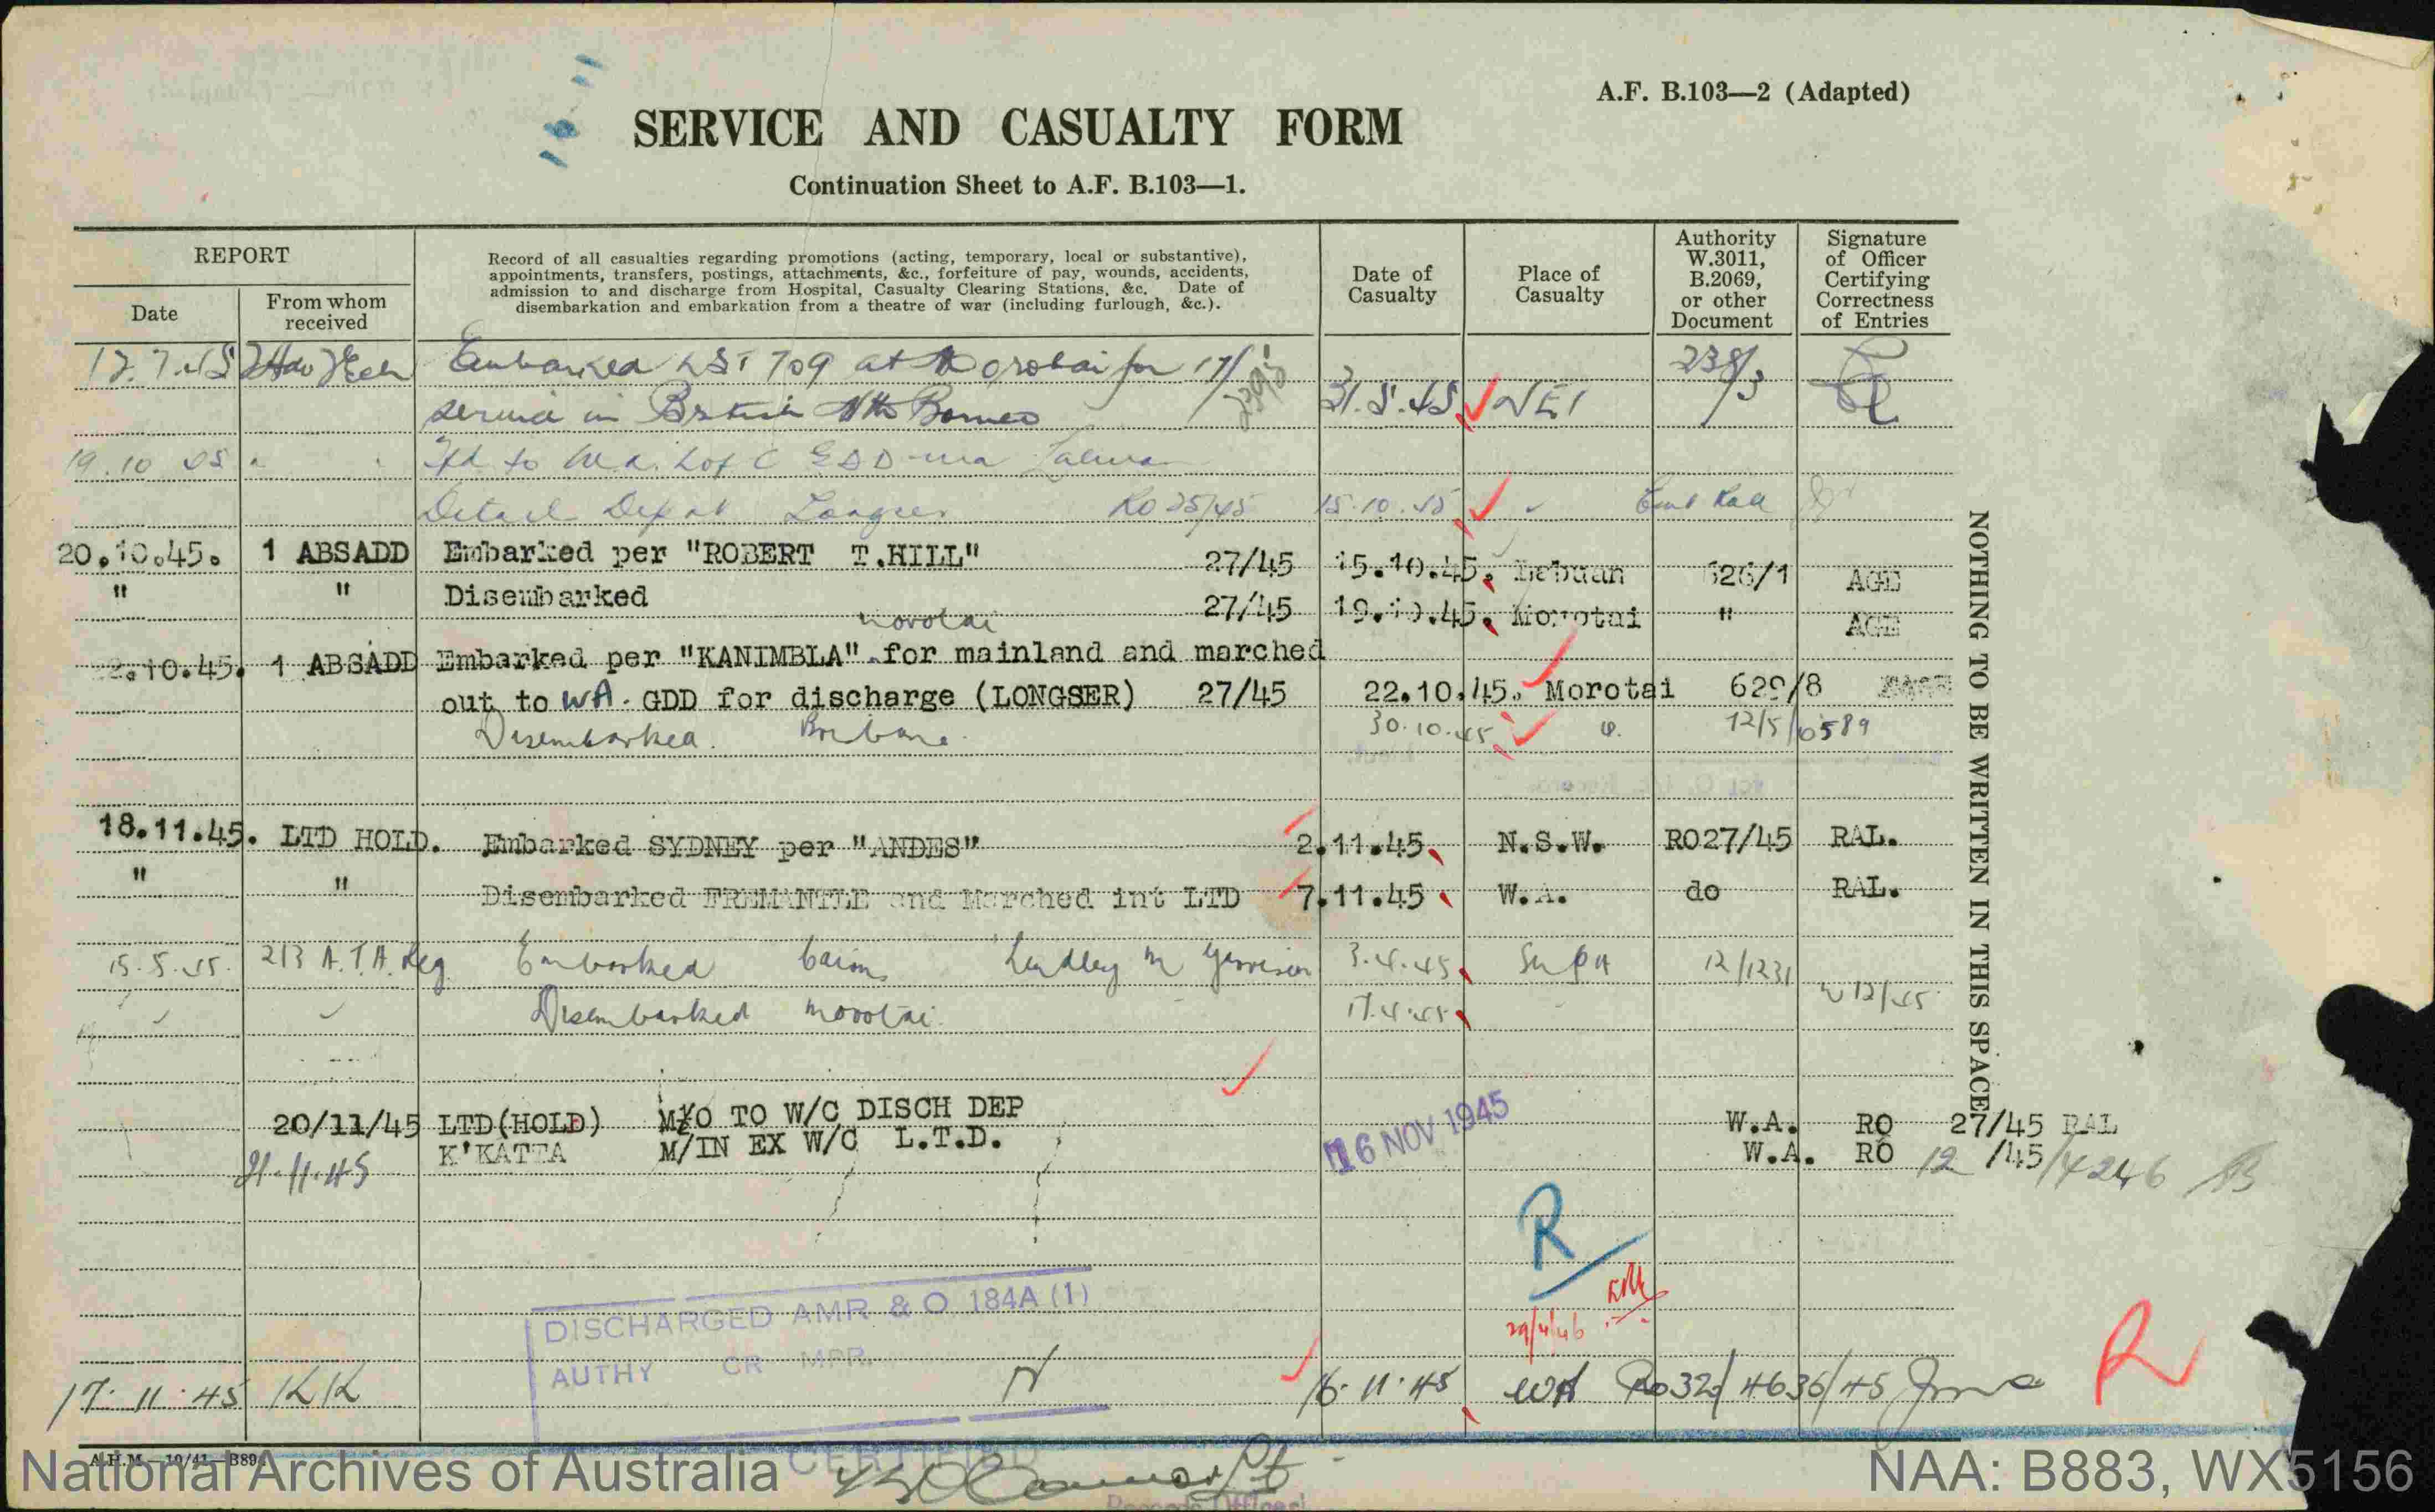 16.11
A.F. B.103—2 (Adapted)
SERVICE AND CASUALTY FORM
Continuation Sheet to A.F. B.103—1.
REPORT
Date
From whom received
Record of all casualties regarding promotions (acting, temporary, local or substantive),
appointments, transfers, postings, attachments, &c., forfeiture of pay, wounds, accidents,
admission to and discharge from Hospital, Casualty Clearing Stations, &c. Date of
disembarkation and embarkation from a theatre of war (including furlough, &c.).
Date of Casualty
Place of Casualty
Authority W.3011, B.2069, or other Document
Signature of Officer Certifying Correctness of Entries
12.7.45 Embarked LST 709 at Morotai for 17/ 238/3
service in British Nth Borneo 31.5.45 NEI
19.10.45 " " Tfd to W.A. L of C GDD via Labuan
Detail Depot Longser RO 25/45 15.10.45
20.10.45. 1 ABSADD Embarked per "ROBERT T.HILL" 27/45 15.10.45. Labuan 626/1 AGE
" " Disembarked 27/45 19.10.45. Morotai " AGE
morotai
2.10.45. 1 ABSADD Embarked per "KANIMBLA" for mainland and marched
out to WA. GDD for discharge (LONGSER) 27/45 22.10.45. Morotai 629/8
Disembarked Brisbane. 30.10.45 12/5/6589
18.11.45. LTD HOLD. Embarked SYDNEY per "ANDES" 2.11.45. N.S.W. RO27/45 RAL.
" " Disembarked FREMANTLE and Marched int LTD 7.11.45 W.A. do RAL.
15.5.45. 213 A.T.A. Reg Embarked Cairns Lindley M Garrison 3.4.45 12/1231
Disembarked morotai. 17.4.45 12/45
20/11/45 LTD(HOLD) M/O TO W/C DISCH DEP W.A. RO 27/45 RAL
16 NOV 1945
21.11.45 K'KATTA M/IN EX W/C L.T.D. W.A. RO 12 /45/4246
R
29/4/46
DISCHARGED AMR & O 184A (1)
AUTHY CR MPR.
17.11.45 KK N 16.11.45 WA RO32/4636/45
R
NOTHING TO BE WRITTEN IN THIS SPACE
A.H.M.—10/41—B89
CERTIFIED
Lt
Records Officer
National Archives of Australia
NAA: B883, WX5156